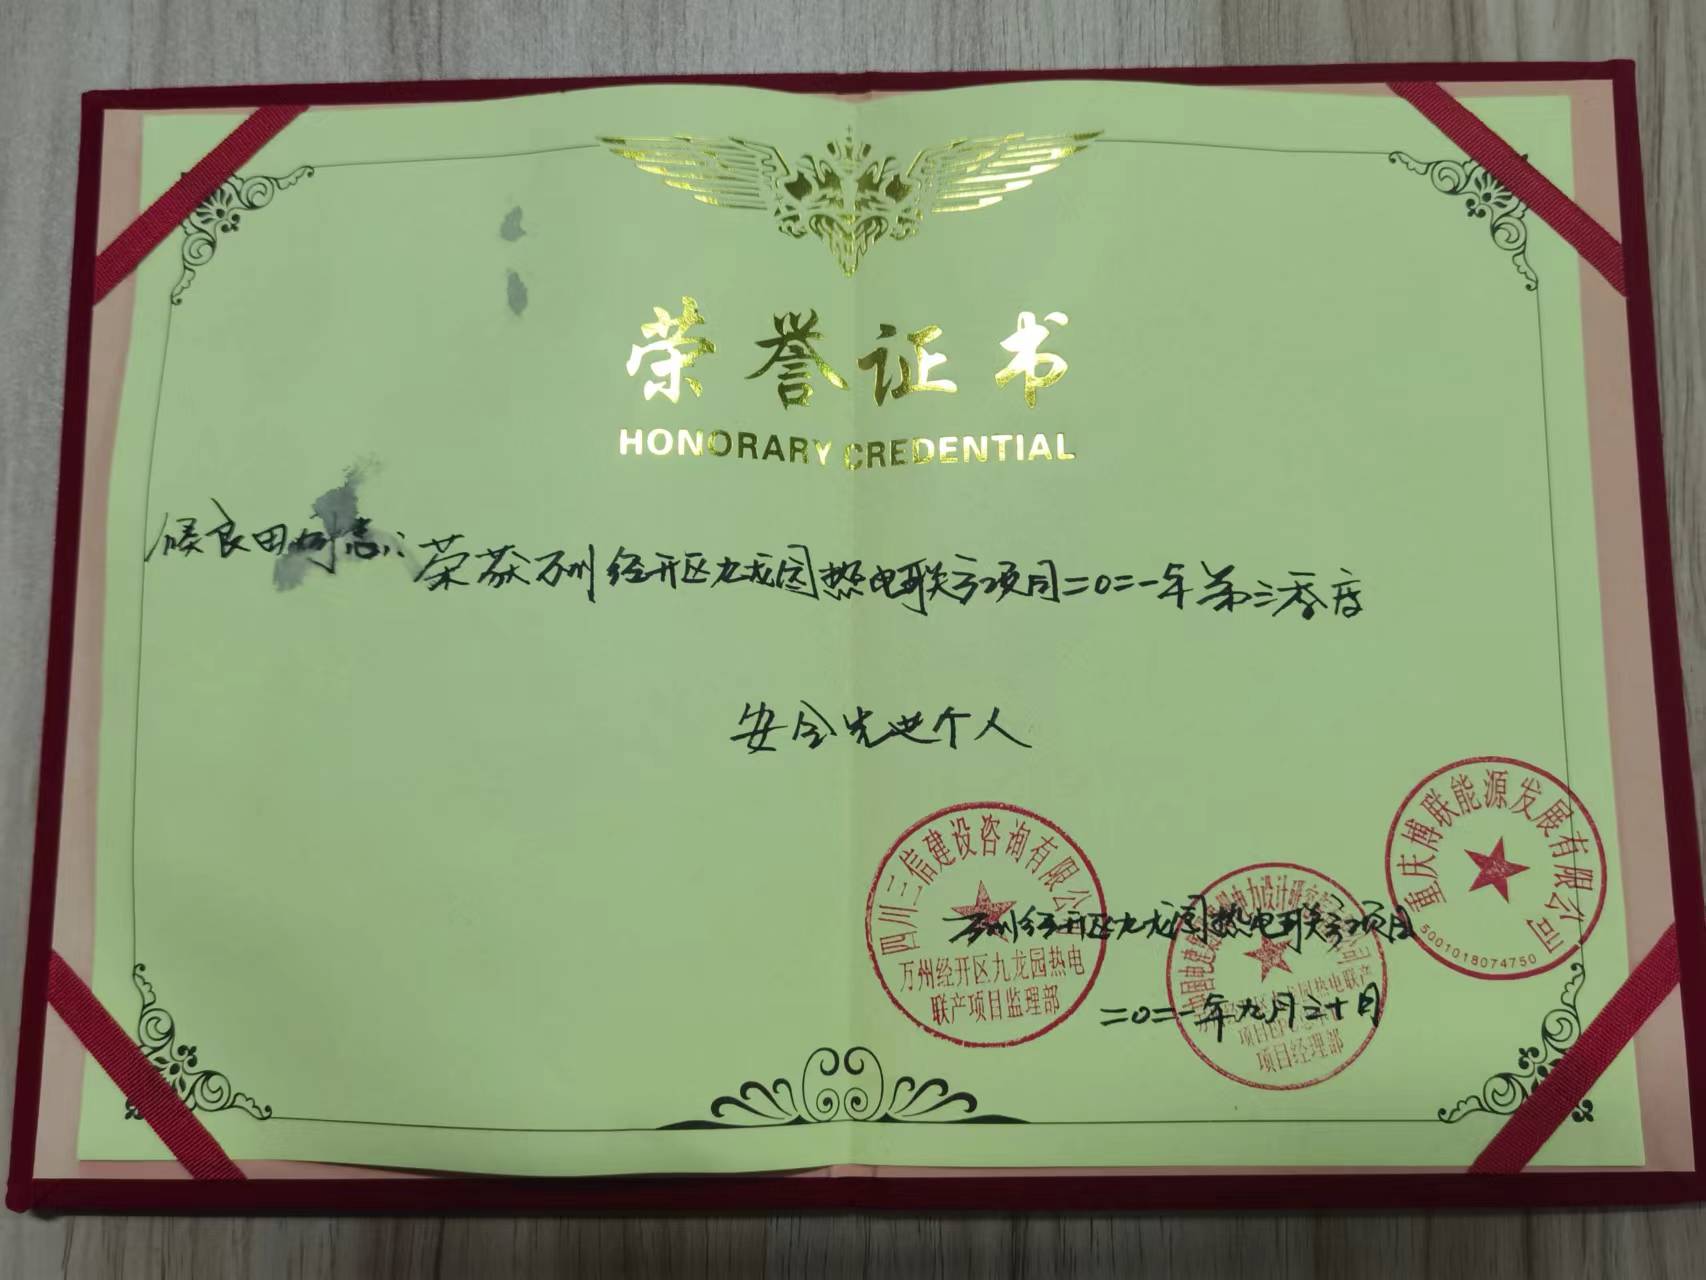 荣誉证书
HONORARY CREDENTIAL
侯良田同志：荣获万州经开区九龙园热电联产项目二〇二一年第三季度
安全先进个人
四川三信建设咨询有限公
万州经开区九龙园热电
联产项目监理部
重庆博联能源发展有限公司
5001018074750
电力设计研究
热电联产
项目EPC
项目经理部
万州经开区九龙园热电联产项目
二〇二一年九月三十日